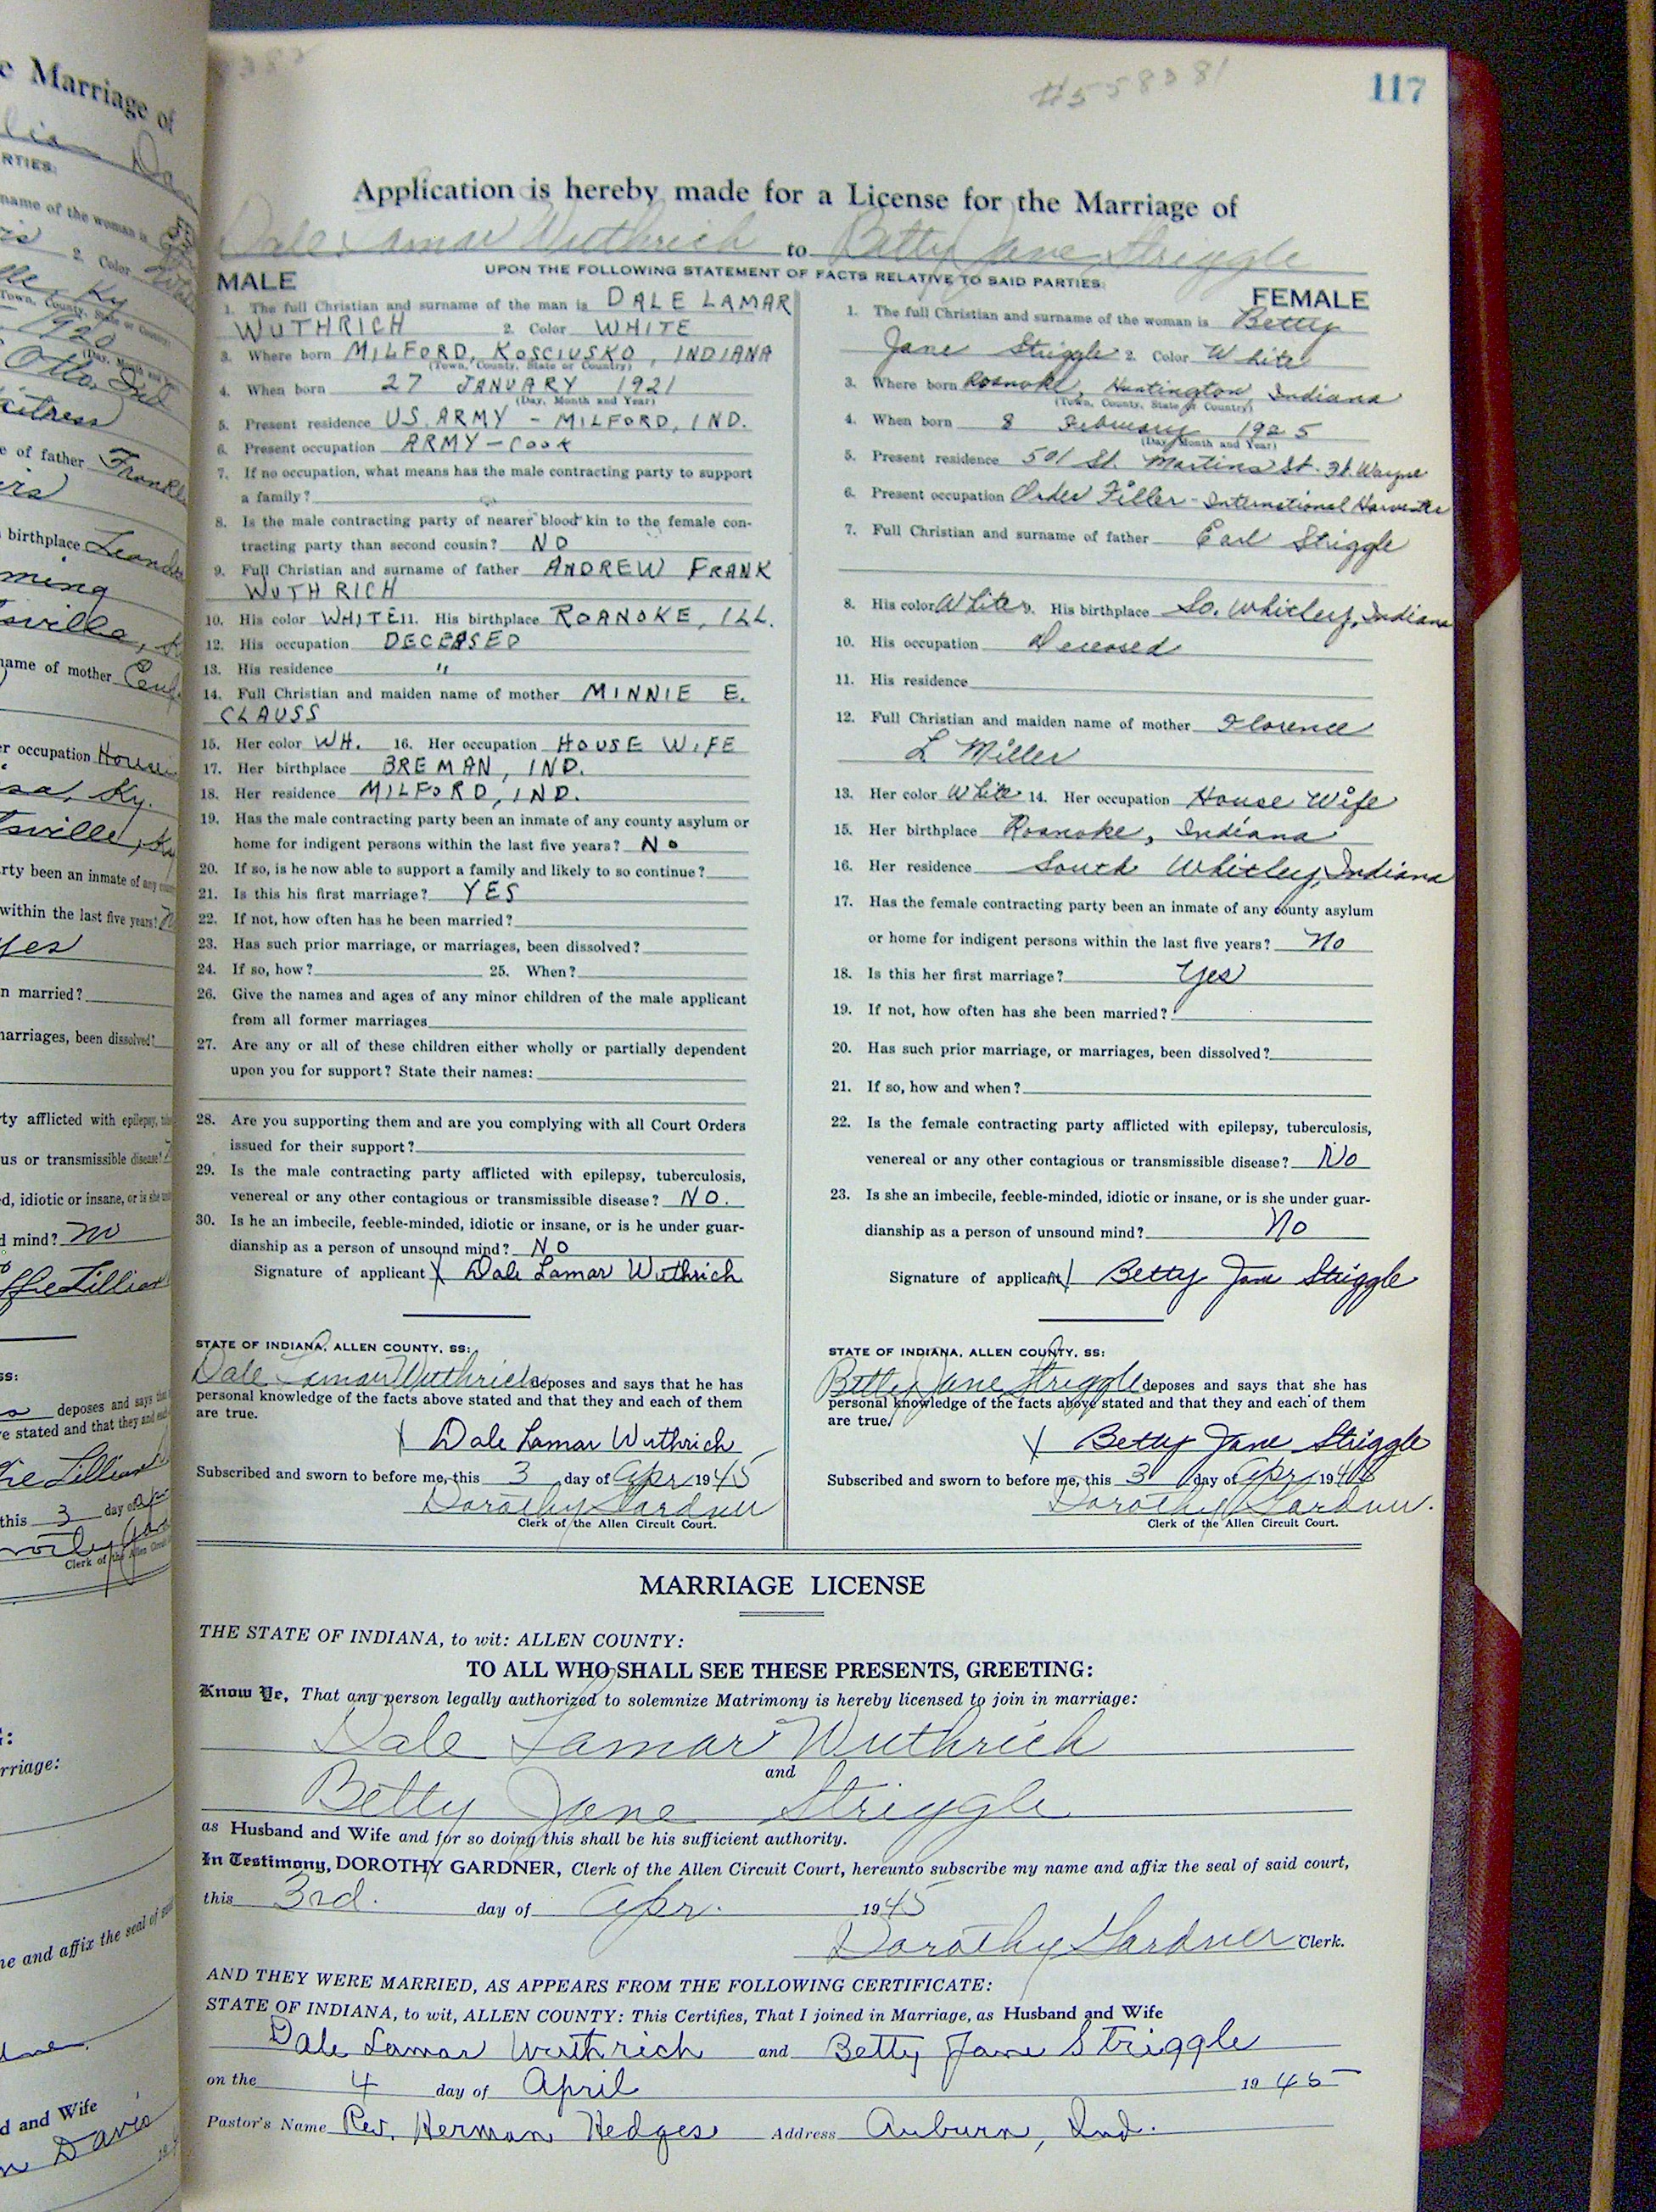 #558381
117
Application is hereby made for a License for the Marriage of
Dale Lamar Wuthrich to Betty Jane Striggle
UPON THE FOLLOWING STATEMENT OF FACTS RELATIVE TO SAID PARTIES:
MALE
1. The full Christian and surname of the man is DALE LAMAR
WUTHRICH 2. Color WHITE
3. Where born MILFORD, KOSCIUSKO, INDIANA
(Town, County, State or Country)
4. When born 27 JANUARY 1921
(Day, Month and Year)
5. Present residence US. ARMY - MILFORD, IND.
6. Present occupation ARMY - COOK
7. If no occupation, what means has the male contracting party to support
a family?
8. Is the male contracting party of nearer blood kin to the female con-
tracting party than second cousin? NO
9. Full Christian and surname of father ANDREW FRANK
WUTHRICH
10. His color WHITE 11. His birthplace ROANOKE, ILL.
12. His occupation DECEASED
13. His residence "
14. Full Christian and maiden name of mother MINNIE E.
CLAUSS
15. Her color WH. 16. Her occupation HOUSE WIFE
17. Her birthplace BREMAN, IND.
18. Her residence MILFORD, IND.
19. Has the male contracting party been an inmate of any county asylum or
home for indigent persons within the last five years? No
20. If so, is he now able to support a family and likely to so continue?
21. Is this his first marriage? YES
22. If not, how often has he been married?
23. Has such prior marriage, or marriages, been dissolved?
24. If so, how? 25. When?
26. Give the names and ages of any minor children of the male applicant
from all former marriages
27. Are any or all of these children either wholly or partially dependent
upon you for support? State their names:
28. Are you supporting them and are you complying with all Court Orders
issued for their support?
29. Is the male contracting party afflicted with epilepsy, tuberculosis,
venereal or any other contagious or transmissible disease? NO.
30. Is he an imbecile, feeble-minded, idiotic or insane, or is he under guar-
dianship as a person of unsound mind? NO
Signature of applicant X Dale Lamar Wuthrich
STATE OF INDIANA, ALLEN COUNTY, SS:
Dale Lamar Wuthrich deposes and says that he has
personal knowledge of the facts above stated and that they and each of them
are true.
X Dale Lamar Wuthrich
Subscribed and sworn to before me, this 3 day of Apr 1945
Dorothy Gardner
Clerk of the Allen Circuit Court.
FEMALE
1. The full Christian and surname of the woman is Betty
Jane Striggle 2. Color White
3. Where born Roanoke, Huntington, Indiana
(Town, County, State or Country)
4. When born 8 February 1925
(Day, Month and Year)
5. Present residence 501 St. Martins St. Ft. Wayne
6. Present occupation Order Filler - International Harvester
7. Full Christian and surname of father Earl Striggle
8. His color White 9. His birthplace So. Whitley, Indiana
10. His occupation Deceased
11. His residence
12. Full Christian and maiden name of mother Florence
L Miller
13. Her color White 14. Her occupation House Wife
15. Her birthplace Roanoke, Indiana
16. Her residence South Whitley, Indiana
17. Has the female contracting party been an inmate of any county asylum
or home for indigent persons within the last five years? No
18. Is this her first marriage? Yes
19. If not, how often has she been married?
20. Has such prior marriage, or marriages, been dissolved?
21. If so, how and when?
22. Is the female contracting party afflicted with epilepsy, tuberculosis,
venereal or any other contagious or transmissible disease? No
23. Is she an imbecile, feeble-minded, idiotic or insane, or is she under guar-
dianship as a person of unsound mind? No
Signature of applicant X Betty Jane Striggle
STATE OF INDIANA, ALLEN COUNTY, SS:
Betty Jane Striggle deposes and says that she has
personal knowledge of the facts above stated and that they and each of them
are true.
X Betty Jane Striggle
Subscribed and sworn to before me, this 3 day of Apr 1945
Dorothy Gardner
Clerk of the Allen Circuit Court.
MARRIAGE LICENSE
THE STATE OF INDIANA, to wit: ALLEN COUNTY:
TO ALL WHO SHALL SEE THESE PRESENTS, GREETING:
Know Ye, That any person legally authorized to solemnize Matrimony is hereby licensed to join in marriage:
Dale Lamar Wuthrich
and
Betty Jane Striggle
as Husband and Wife and for so doing this shall be his sufficient authority.
In Testimony, DOROTHY GARDNER, Clerk of the Allen Circuit Court, hereunto subscribe my name and affix the seal of said court,
this 3rd. day of Apr. 1945
Dorothy Gardner Clerk.
AND THEY WERE MARRIED, AS APPEARS FROM THE FOLLOWING CERTIFICATE:
STATE OF INDIANA, to wit, ALLEN COUNTY: This Certifies, That I joined in Marriage, as Husband and Wife
Dale Lamar Wuthrich and Betty Jane Striggle
on the 4 day of April 1945
Pastor's Name Rev. Herman Hedges Address Auburn, Ind.